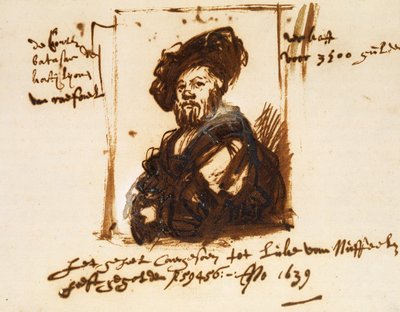 de Conte
batasar de
kastijlijone
van raefael
verkoft
voor 3500 gulden
het geheel Caergesoen tot Luke van Nuffeelen
heeft gegolden f 59456:- Ao 1639